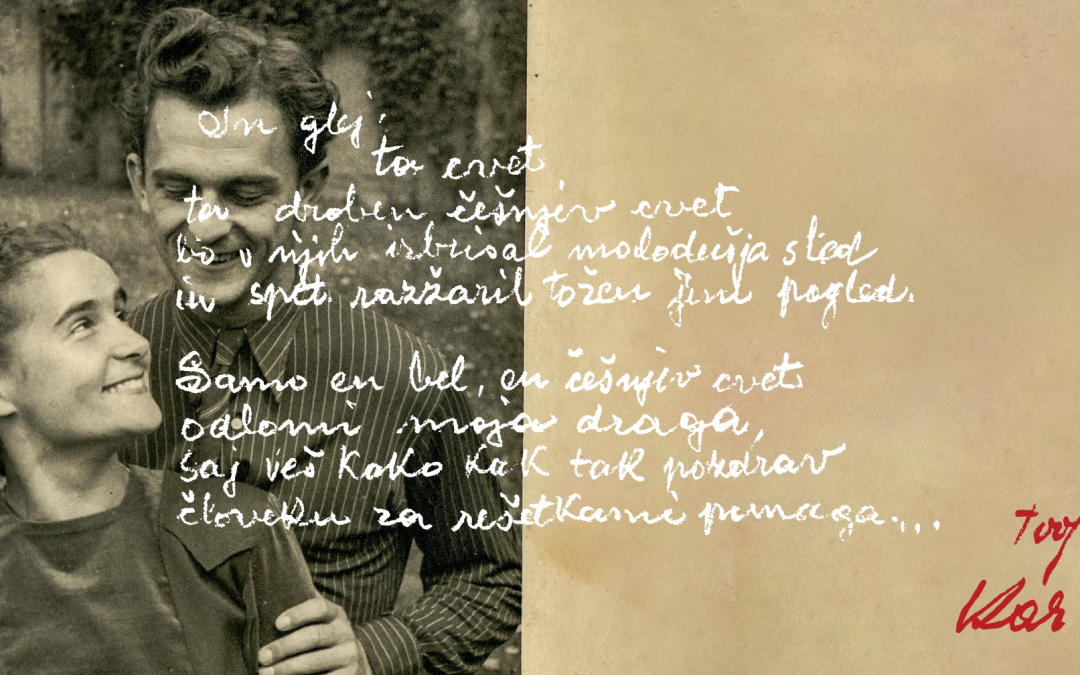 In glej!
ta cvet
ta droben češnjev cvet
bo v njih izbrisal malodušja sled
in spet razžaril tožen jim pogled.
Samo en bel, en češnjev cvet
odlomi moja draga,
saj veš kako kak tak pozdrav
človeku za rešetkami pomaga....
Tvoj
Kar